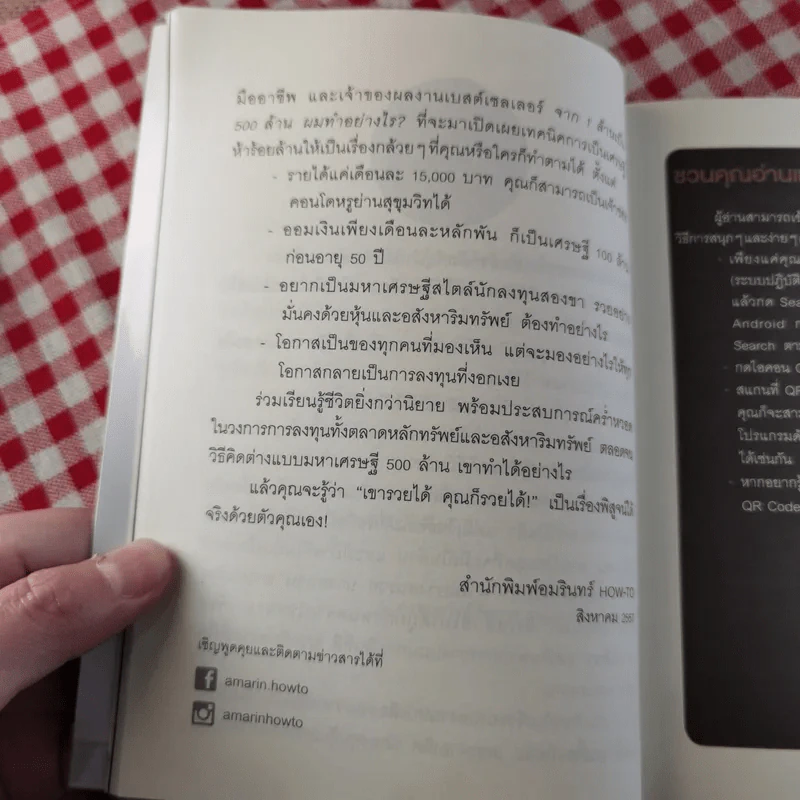 มืออาชีพ และเจ้าของผลงานเบสต์เซลเลอร์ จาก 1 ล้านเป็น
500 ล้าน ผมทำอย่างไร? ที่จะมาเปิดเผยเทคนิคการเป็นเศรษฐี
ห้าร้อยล้านให้เป็นเรื่องกล้วยๆ ที่คุณหรือใครก็ทำตามได้ ตั้งแต่
- รายได้แค่เดือนละ 15,000 บาท คุณก็สามารถเป็นเจ้าของ
คอนโดหรูย่านสุขุมวิทได้
- ออมเงินเพียงเดือนละหลักพัน ก็เป็นเศรษฐี 100 ล้าน
ก่อนอายุ 50 ปี
- อยากเป็นมหาเศรษฐีสไตล์นักลงทุนสองขา รวยอย่าง
มั่นคงด้วยหุ้นและอสังหาริมทรัพย์ ต้องทำอย่างไร
- โอกาสเป็นของทุกคนที่มองเห็น แต่จะมองอย่างไรให้ทุก
โอกาสกลายเป็นการลงทุนที่งอกเงย
ร่วมเรียนรู้ชีวิตยิ่งกว่านิยาย พร้อมประสบการณ์คร่ำหวอด
ในวงการการลงทุนทั้งตลาดหลักทรัพย์และอสังหาริมทรัพย์ ตลอดจน
วิธีคิดต่างแบบมหาเศรษฐี 500 ล้าน เขาทำได้อย่างไร
แล้วคุณจะรู้ว่า "เขารวยได้ คุณก็รวยได้!" เป็นเรื่องพิสูจน์ได้
จริงด้วยตัวคุณเอง!
สำนักพิมพ์อมรินทร์ HOW-TO
สิงหาคม 2557
เชิญพูดคุยและติดตามข่าวสารได้ที่
amarin.howto
amarinhowto
ชวนคุณอ่าน
ผู้อ่านสามารถ
วิธีการสนุกๆ และง่ายๆ
- เพียงแค่คุณ
(ระบบปฏิบัติ
- แล้วกด
Android
Search
- กดไอคอน
- สแกนที่ QR
คุณก็จะ
โปรแกรม
ได้เช่นกัน
- หากอยากรู้
QR Code